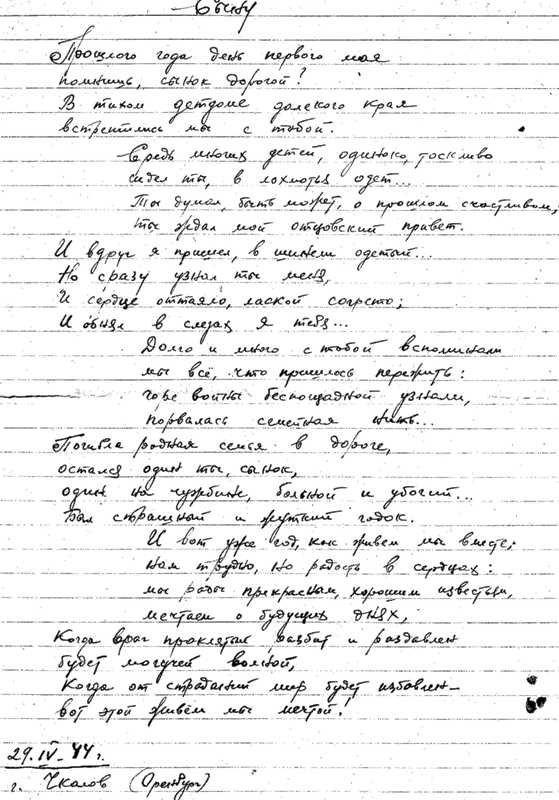 Сыну
Прошлого года день первого мая
помнишь, сынок дорогой?
В тихом детдоме далекого края
встретились мы с тобой.
Средь многих детей, одиноко, тоскливо
сидел ты, в лохмотья одет...
Ты думал, быть может, о прошлом счастливом,
ты ждал мой отцовский привет.
И вдруг я пришел, в шинели одетый...
Но сразу узнал ты меня,
И сердце оттаяло, лаской согрето;
И обнял в слезах я тебя...
Долго и много с тобой вспоминали
мы всё, что пришлось пережить:
горе войны беспощадной узнали,
порвалась семейная нить...
Погибла родная семья в дороге,
остался один ты, сынок,
один на чужбине, больной и убогий...
Был страшный и жуткий годок.
И вот уже год, как живем мы вместе;
нам трудно, но радость в сердцах:
мы рады прекрасным, хорошим известьям,
мечтаем о будущих днях,
Когда враг проклятый разбит и раздавлен
будет могучей волной,
Когда от страданий мир будет избавлен—
вот этой живём мы мечтой!
29.IV-44 г.
г. Чкалов (Оренбург)